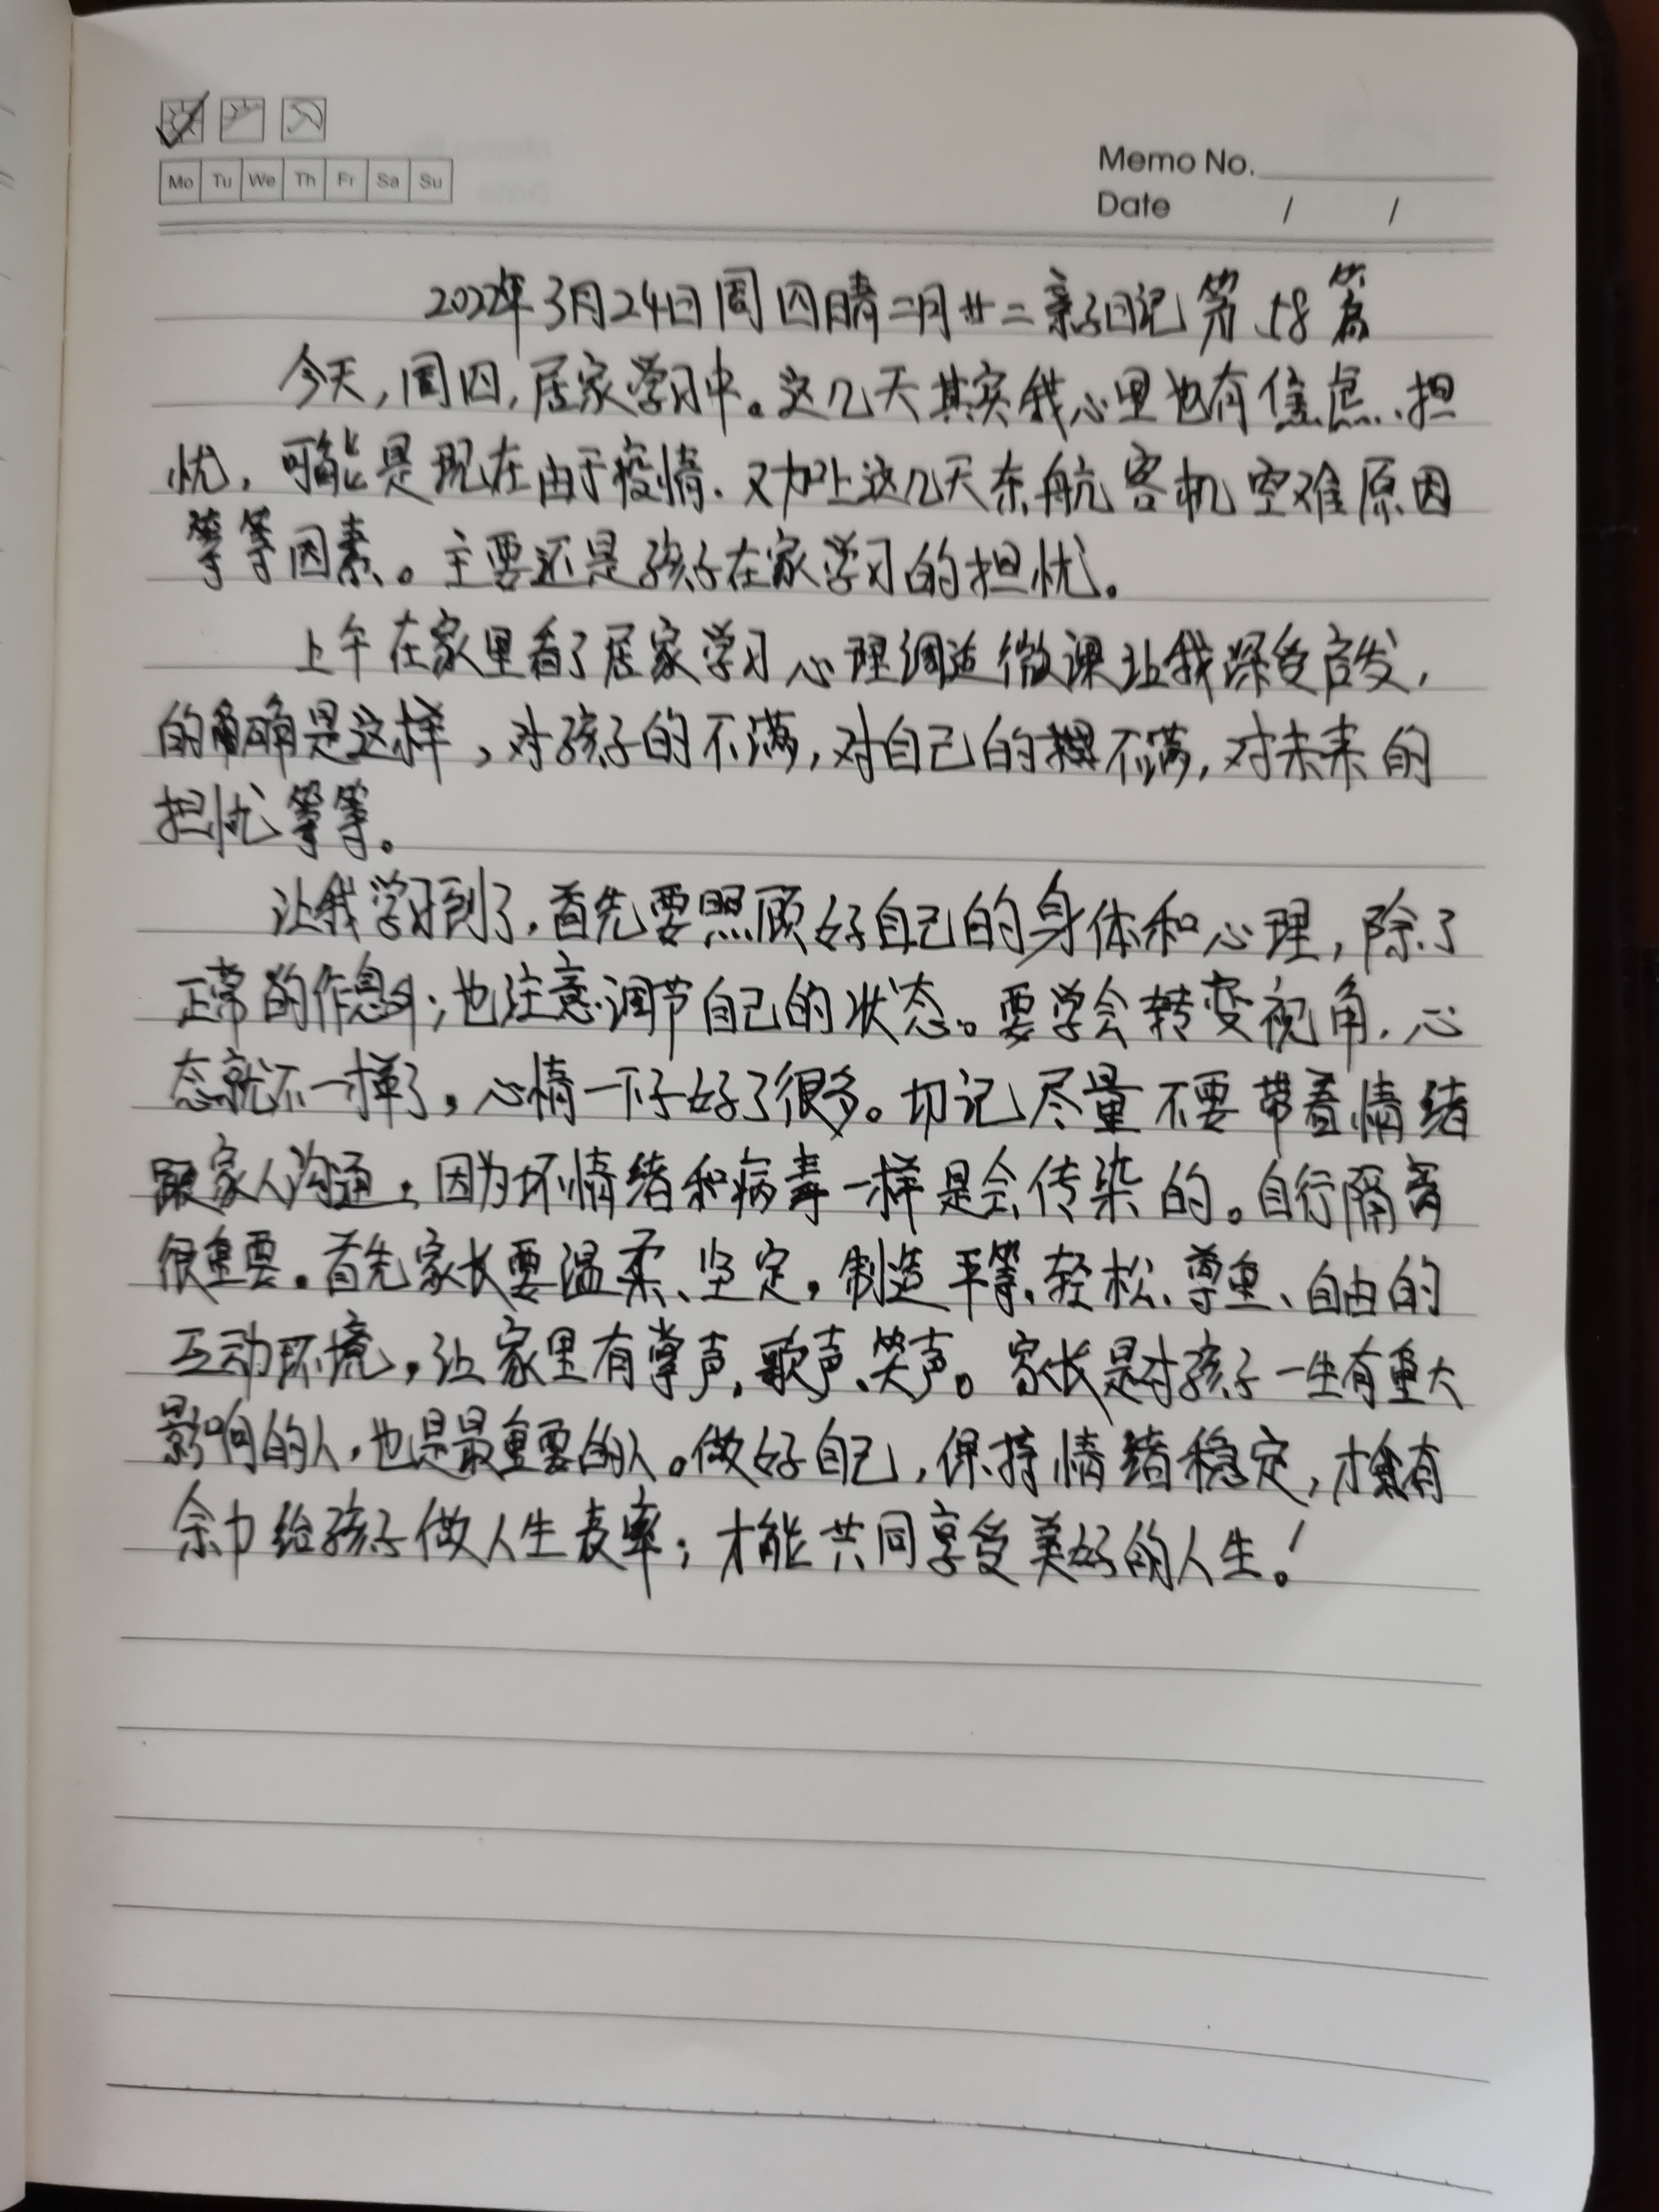 Mo Tu We Th Fr Sa Su
Memo No.
Date / /
2022年3月24日周四晴二月廿二亲子日记第58篇
今天,周四,居家学习中。这几天其实我心里也有焦虑、担
忧,可能是现在由于疫情.又加上这几天东航客机空难原因
等等因素。主要还是孩子在家学习的担忧。
上午在家里看了居家学习心理调适微课让我深受启发,
的确是这样,对孩子的不满,对自己的不满,对未来的
担忧等等。
让我学习到了,首先要照顾好自己的身体和心理,除了
正常的作息外;也注意调节自己的状态。要学会转变视角,心
态就不一样了,心情一下子好了很多。切记尽量不要带着情绪
跟家人沟通,因为坏情绪和病毒一样是会传染的。自行隔离
很重要。首先家长要温柔、坚定,制造平等、轻松、尊重、自由的
互动环境,让家里有掌声,歌声、笑声。家长是对孩子一生有重大
影响的人,也是最重要的人。做好自己,保持情绪稳定,才会有
余力给孩子做人生表率;才能共同享受美好的人生!